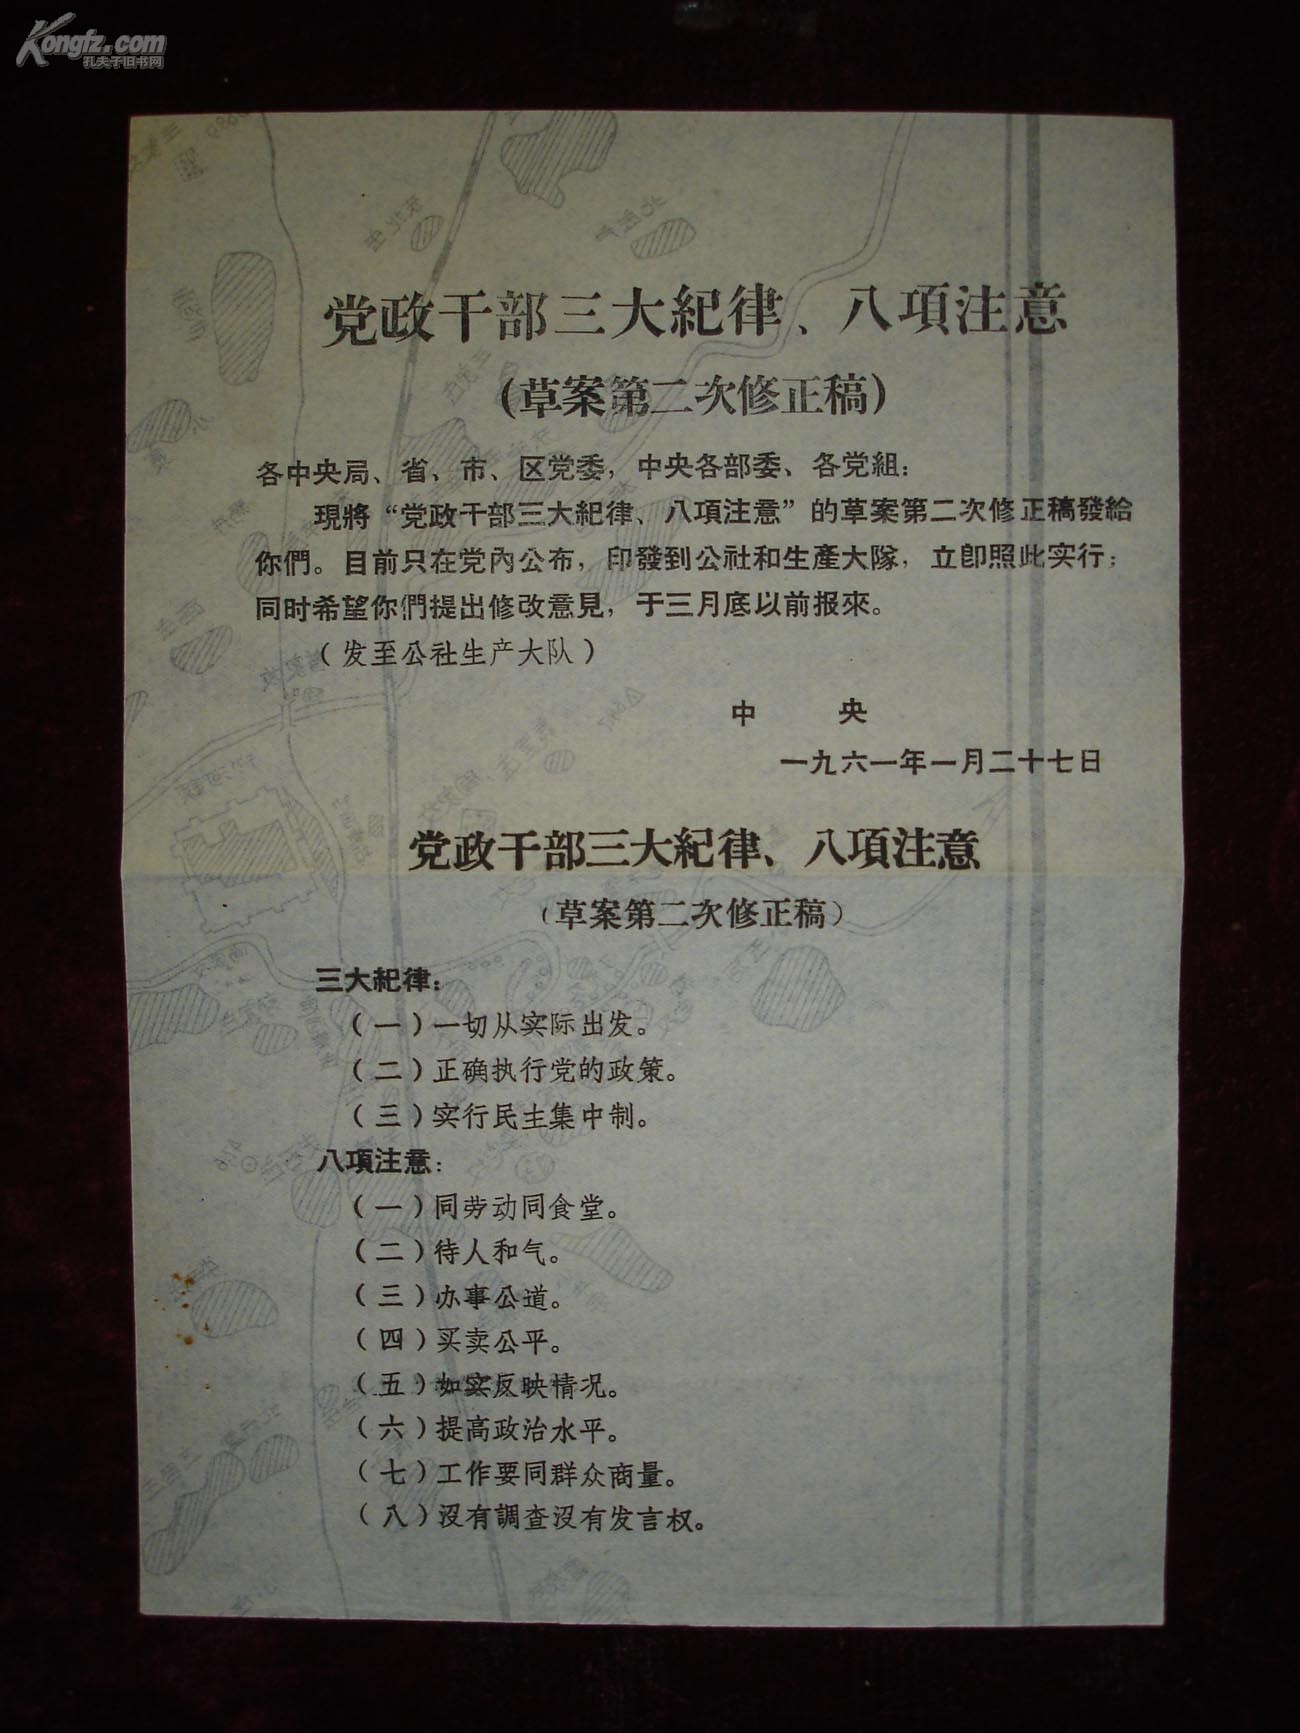 Kongfz.com
孔夫子旧书网
党政干部三大紀律、八項注意
(草案第二次修正稿)
各中央局、省、市、区党委，中央各部委、各党組：
現將“党政干部三大紀律、八項注意”的草案第二次修正稿發給
你們。目前只在党內公布，印發到公社和生產大隊，立卽照此实行；
同时希望你們提出修改意見，于三月底以前报來。
（发至公社生产大队）
中 央
一九六一年一月二十七日
党政干部三大紀律、八項注意
（草案第二次修正稿）
三大紀律：
（一）一切从实际出发。
（二）正确执行党的政策。
（三）实行民主集中制。
八項注意：
（一）同劳动同食堂。
（二）待人和气。
（三）办事公道。
（四）买卖公平。
（五）如实反映情况。
（六）提高政治水平。
（七）工作要同群众商量。
（八）沒有調查沒有发言权。